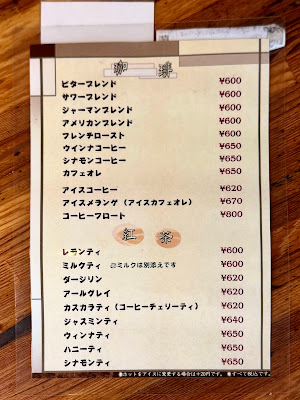 珈琲
ビターブレンド ¥600
サワーブレンド ¥600
ジャーマンブレンド ¥600
アメリカンブレンド ¥600
フレンチロースト ¥600
ウインナコーヒー ¥650
シナモンコーヒー ¥650
カフェオレ ¥650
アイスコーヒー ¥620
アイスメランゲ（アイスカフェオレ） ¥670
コーヒーフロート ¥800
紅茶
レモンティ ¥600
ミルクティ ※ミルクは別添えです ¥600
ダージリン ¥620
アールグレイ ¥620
カスカラティ（コーヒーチェリーティ） ¥620
ジャスミンティ ¥640
ウィンナティ ¥650
ハニーティ ¥650
シナモンティ ¥650
●ホットをアイスに変更する場合は＋20円です。 ●すべて税込です。